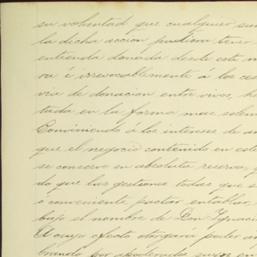 su voluntad que cualquier
la dicha accion pudiera tener
entienda donada desde este
ra é irrevocablemente á los
via de donacion entre vivos,
tada en la forma mas solem
Conviniendo á los intereses de
que el negocio contenido en este
se conserve en absoluta reserva,
do que las gestiones todas que
ó conveniente practicar entablar
bajo el nombre de Don Ignacio
A cuyo efecto otorgará poder